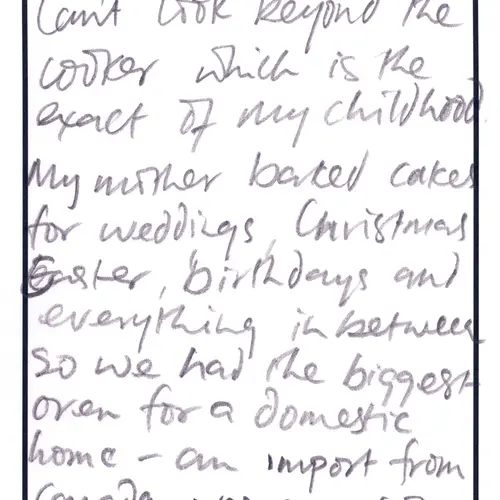 Can't look beyond the
cooker which is the
exact of my childhood.
My mother baked cakes
for weddings, Christmas
Easter, birthdays and
everything in between
so we had the biggest
oven for a domestic
home - an import from
Canada